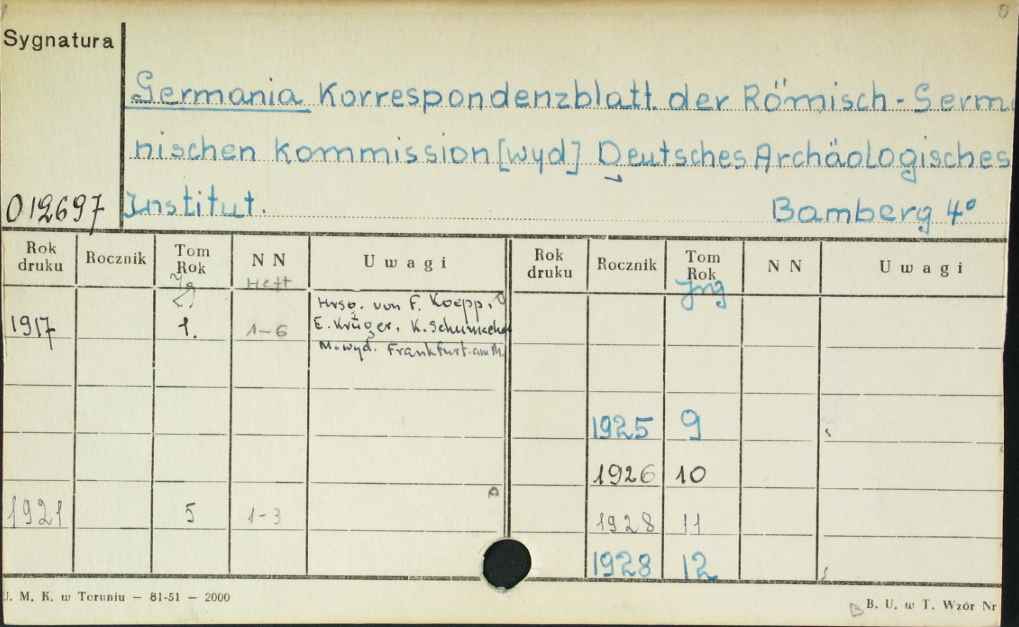 Sygnatura
Germania Korrespondenzblatt der Römisch-Germ
nischen Kommission [wyd] Deutsches Archäologisches
012697 Institut. Bamberg 4°
Rok druku Rocznik Tom Rok N N Uwagi Rok druku Rocznik Tom Rok N N Uwagi
Jg Heft Jng
1917 1. 1-6 Hrsg. von F. Koepp,
E. Krüger, K. Schumacher
M. wyd. Frankfurt am M.
1925 9
1926 10
1921 5 1-3 1928 11
1928 12
U. M. K. w Toruniu — 81-51 — 2000
B. U. w T. Wzór Nr